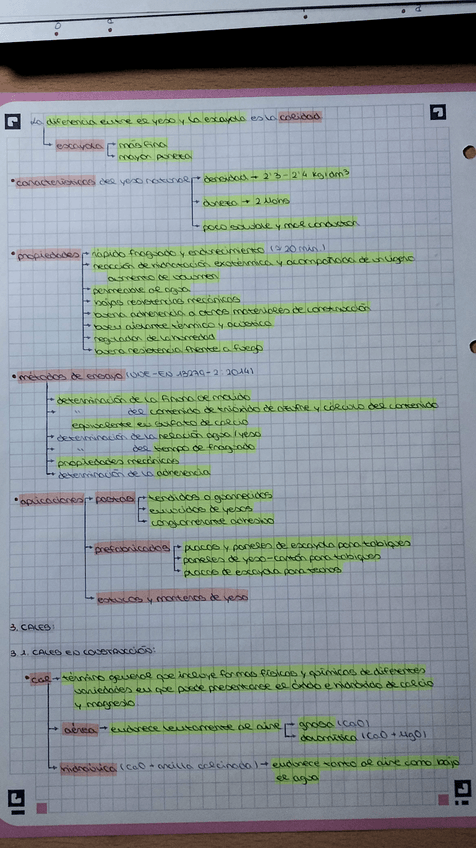 La diferencia entre el yeso y la escayola es la calidad
escayola
más fina
mayor pureza
• características del yeso natural
densidad → 2'3 - 2'4 kg/dm³
dureza → 2 Mohs
poco soluble y mal conductor
• propiedades
rápido fraguado y endurecimiento (≈ 20 min.)
reacción de hidratación exotérmica y acompañada de un ligero
aumento de volumen
permeable al agua
bajas resistencias mecánicas
buena adherencia a otros materiales de construcción
buen aislante térmico y acústico
regulador de la humedad
buena resistencia frente a fuego
• métodos de ensayo (UNE-EN 13279-2:2014)
determinación de la finura de molido
" del contenido de trióxido de azufre y cálculo del contenido
equivalente en sulfato de calcio
determinación de la relación agua/yeso
" del tiempo de fraguado
propiedades mecánicas
determinación de la adherencia
• aplicaciones
pastas
tendidos o guarnecidos
enlucidos de yeso
conglomerante adhesivo
prefabricados
placas y paneles de escayola para tabiques
paneles de yeso-cartón para tabiques
placas de escayola para techos
estucos y morteros de yeso
3. CALES:
3.1. CALES EN CONSTRUCCIÓN:
• cal → término general que incluye formas físicas y químicas de diferentes
variedades en que puede presentarse el óxido e hidróxido de calcio
y magnesio
aérea → endurece lentamente al aire
grasa (CaO)
dolomítica (CaO + MgO)
hidráulica (CaO + arcilla calcinada) → endurece tanto al aire como bajo
el agua